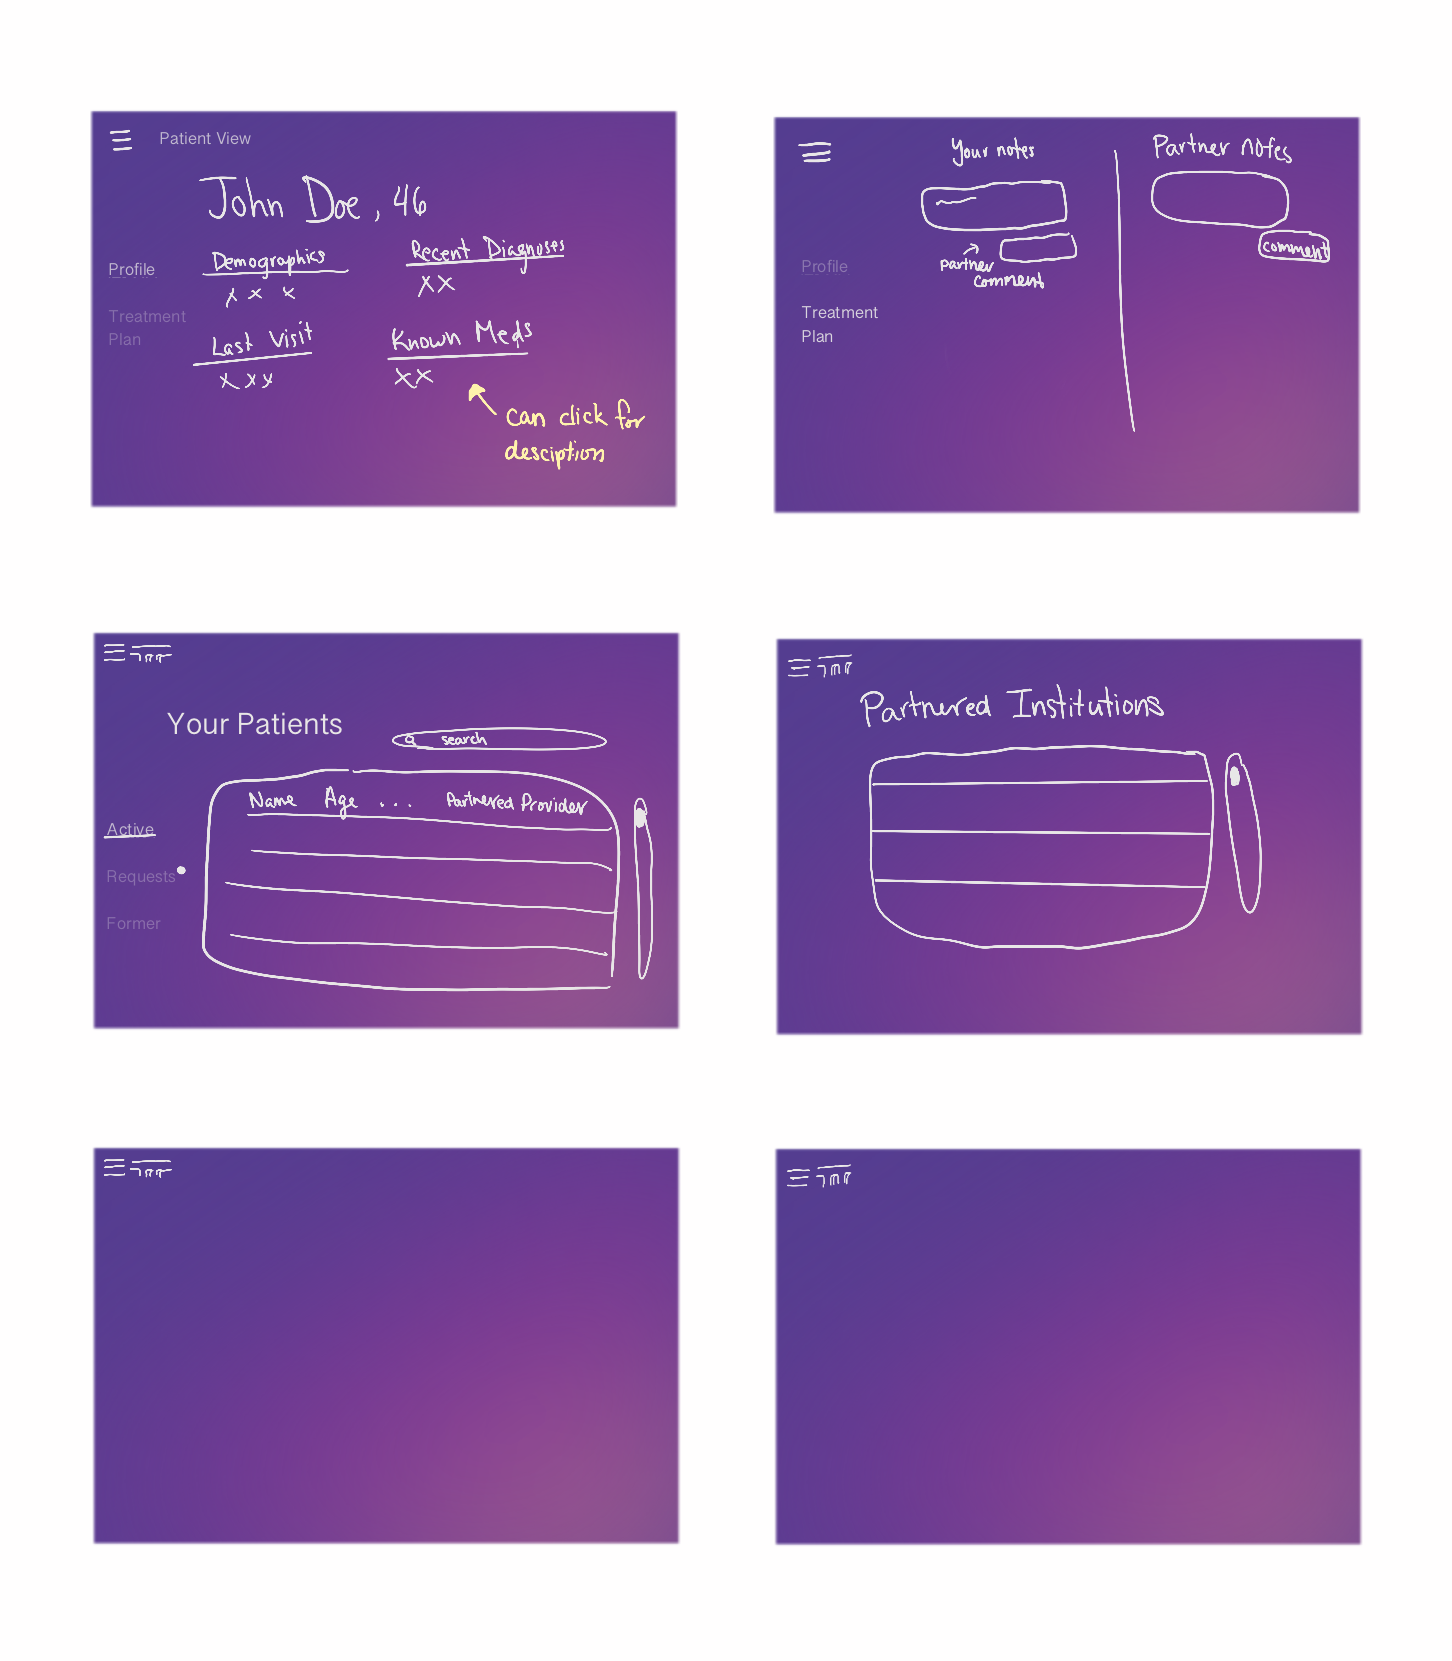 Patient View
John Doe, 46
Profile
Treatment
Plan
Demographics
x x x
Recent Diagnoses
xx
Last Visit
xxx
Known Meds
xx
can click for
desciption
Your notes
Partner notes
partner
comment
comment
Profile
Treatment
Plan
Your Patients
search
Active
Requests
Former
Name Age ... Partnered Provider
Partnered Institutions